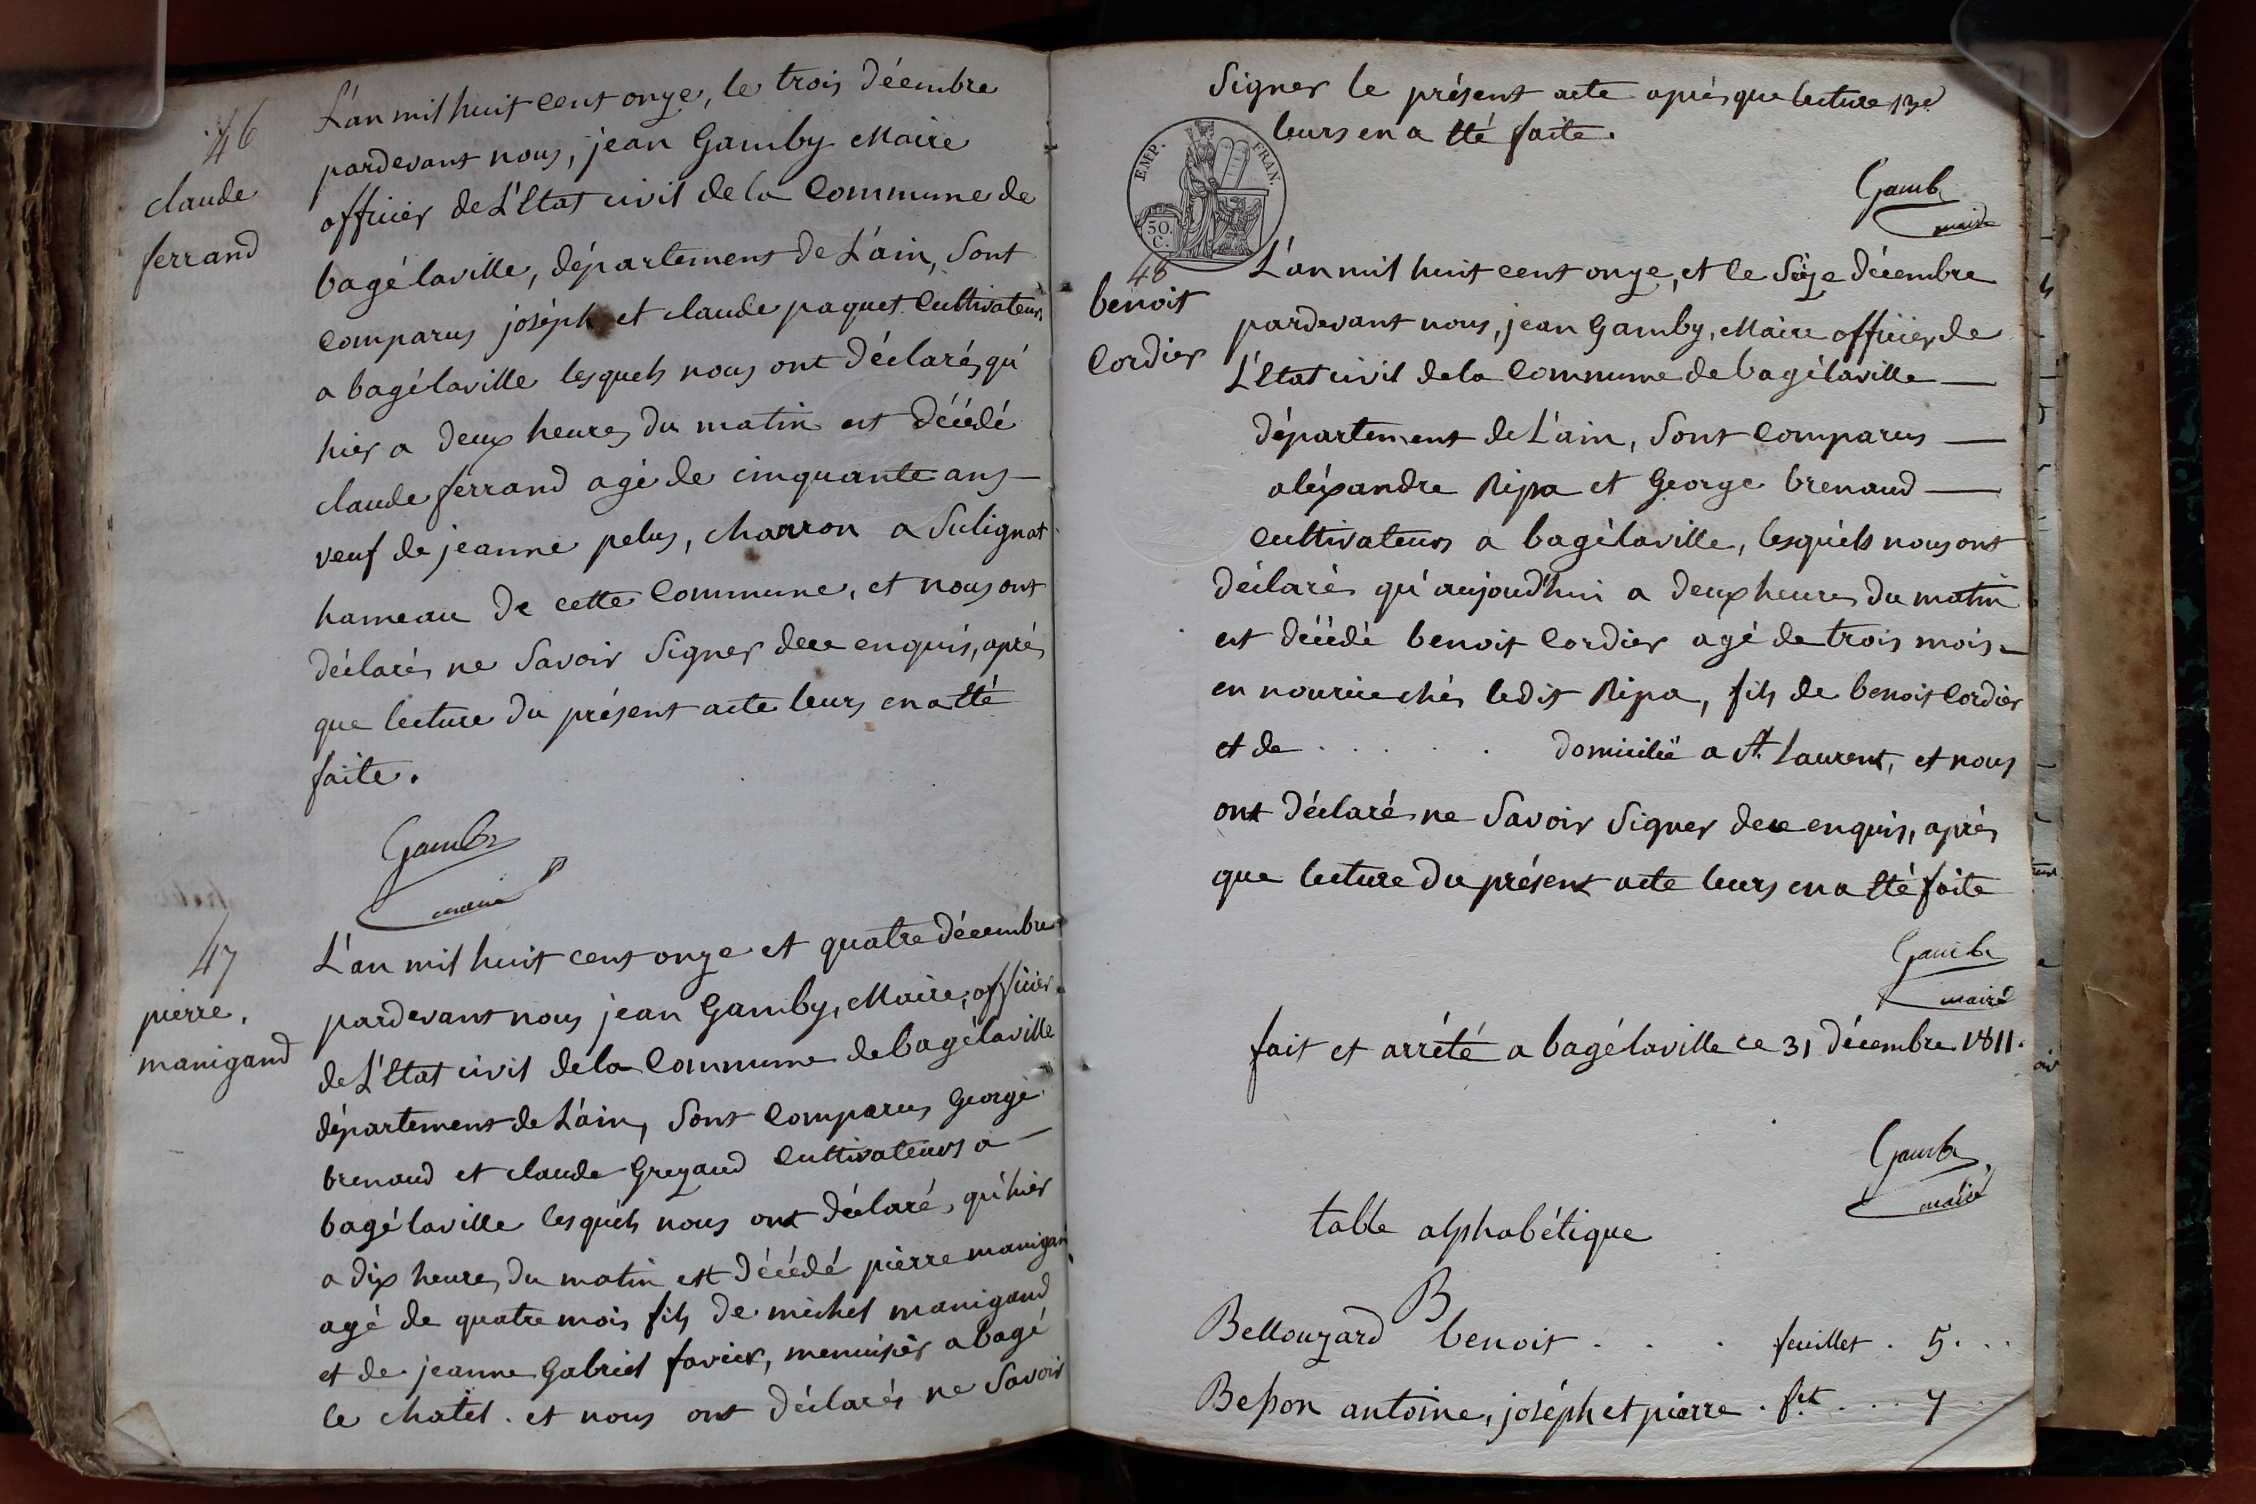 46
claude
ferrand
L'an mil huit cent onze, le trois déembre
pardevant nous, jean Gamby Maire
officier de L'Etat civil de la Commune de
bagélaville, département de L'ain, Sont
Comparus joséph et claude paquet Cultivateurs
a bagélaville lesquels nous ont déclarés qu'
hier a deux heures du matin est décédé
claude ferrand agé de cinquante ans
veuf de jeanne pelus, charron a Sulignat
hameau de cette Commune, et nous ont
déclarés ne Savoir Signer de ce enquis, aprés
que lecture du présent acte leurs en a Eté
faite.
Gamby
maire
47
pierre,
manigand
L'an mil huit cent onze et quatre décembre
pardevant nous jean Gamby, Maire, officier
de L'Etat civil de la Commune de bagélaville
département de L'ain, Sont Comparus George
brenaud et claude Grezaud Cultivateurs a
bagélaville lesquéls nous ont déclarés, qu'hier
a dix heures du matin est décédé pierre manigan
agé de quatre mois fils de michel manigand
et de jeanne Gabriel favier, menuisier a bagé
le chatel. et nous ont déclarés ne Savoir
Signer le présent acte aprés que lecture
leurs en a Eté faite.
EMP. FRAN.
50 C.
Gamby
maire
48
benoit
Cordier
L'an mil huit cent onze, et le Seize décembre
pardevant nous, jean Gamby, Maire officier de
L'Etat civil de la Commune de bagélaville
département de L'ain, Sont Comparus
aléxandre Ripa et George brenaud
Cultivateurs a bagélaville, lesquéls nous ont
déclarés qu'aujoud'hui a deux heures du matin
est décédé benoit Cordier agé de trois mois
en nourice chés ledit Ripa, fils de benoit Cordier
et de . . . . . domicilié a St. Laurent, et nous
ont déclaré ne Savoir Signer de ce enquis, aprés
que lecture du présent acte leurs en a Eté faite
Gamby
maire
fait et arrété a bagélaville ce 31 décembre 1811.
Gamby
maire
table alphabétique
B
Bellouzard benoit . . . feuillet . 5 . . .
Besson antoine, joséph et pierre . fet . . . 7 .